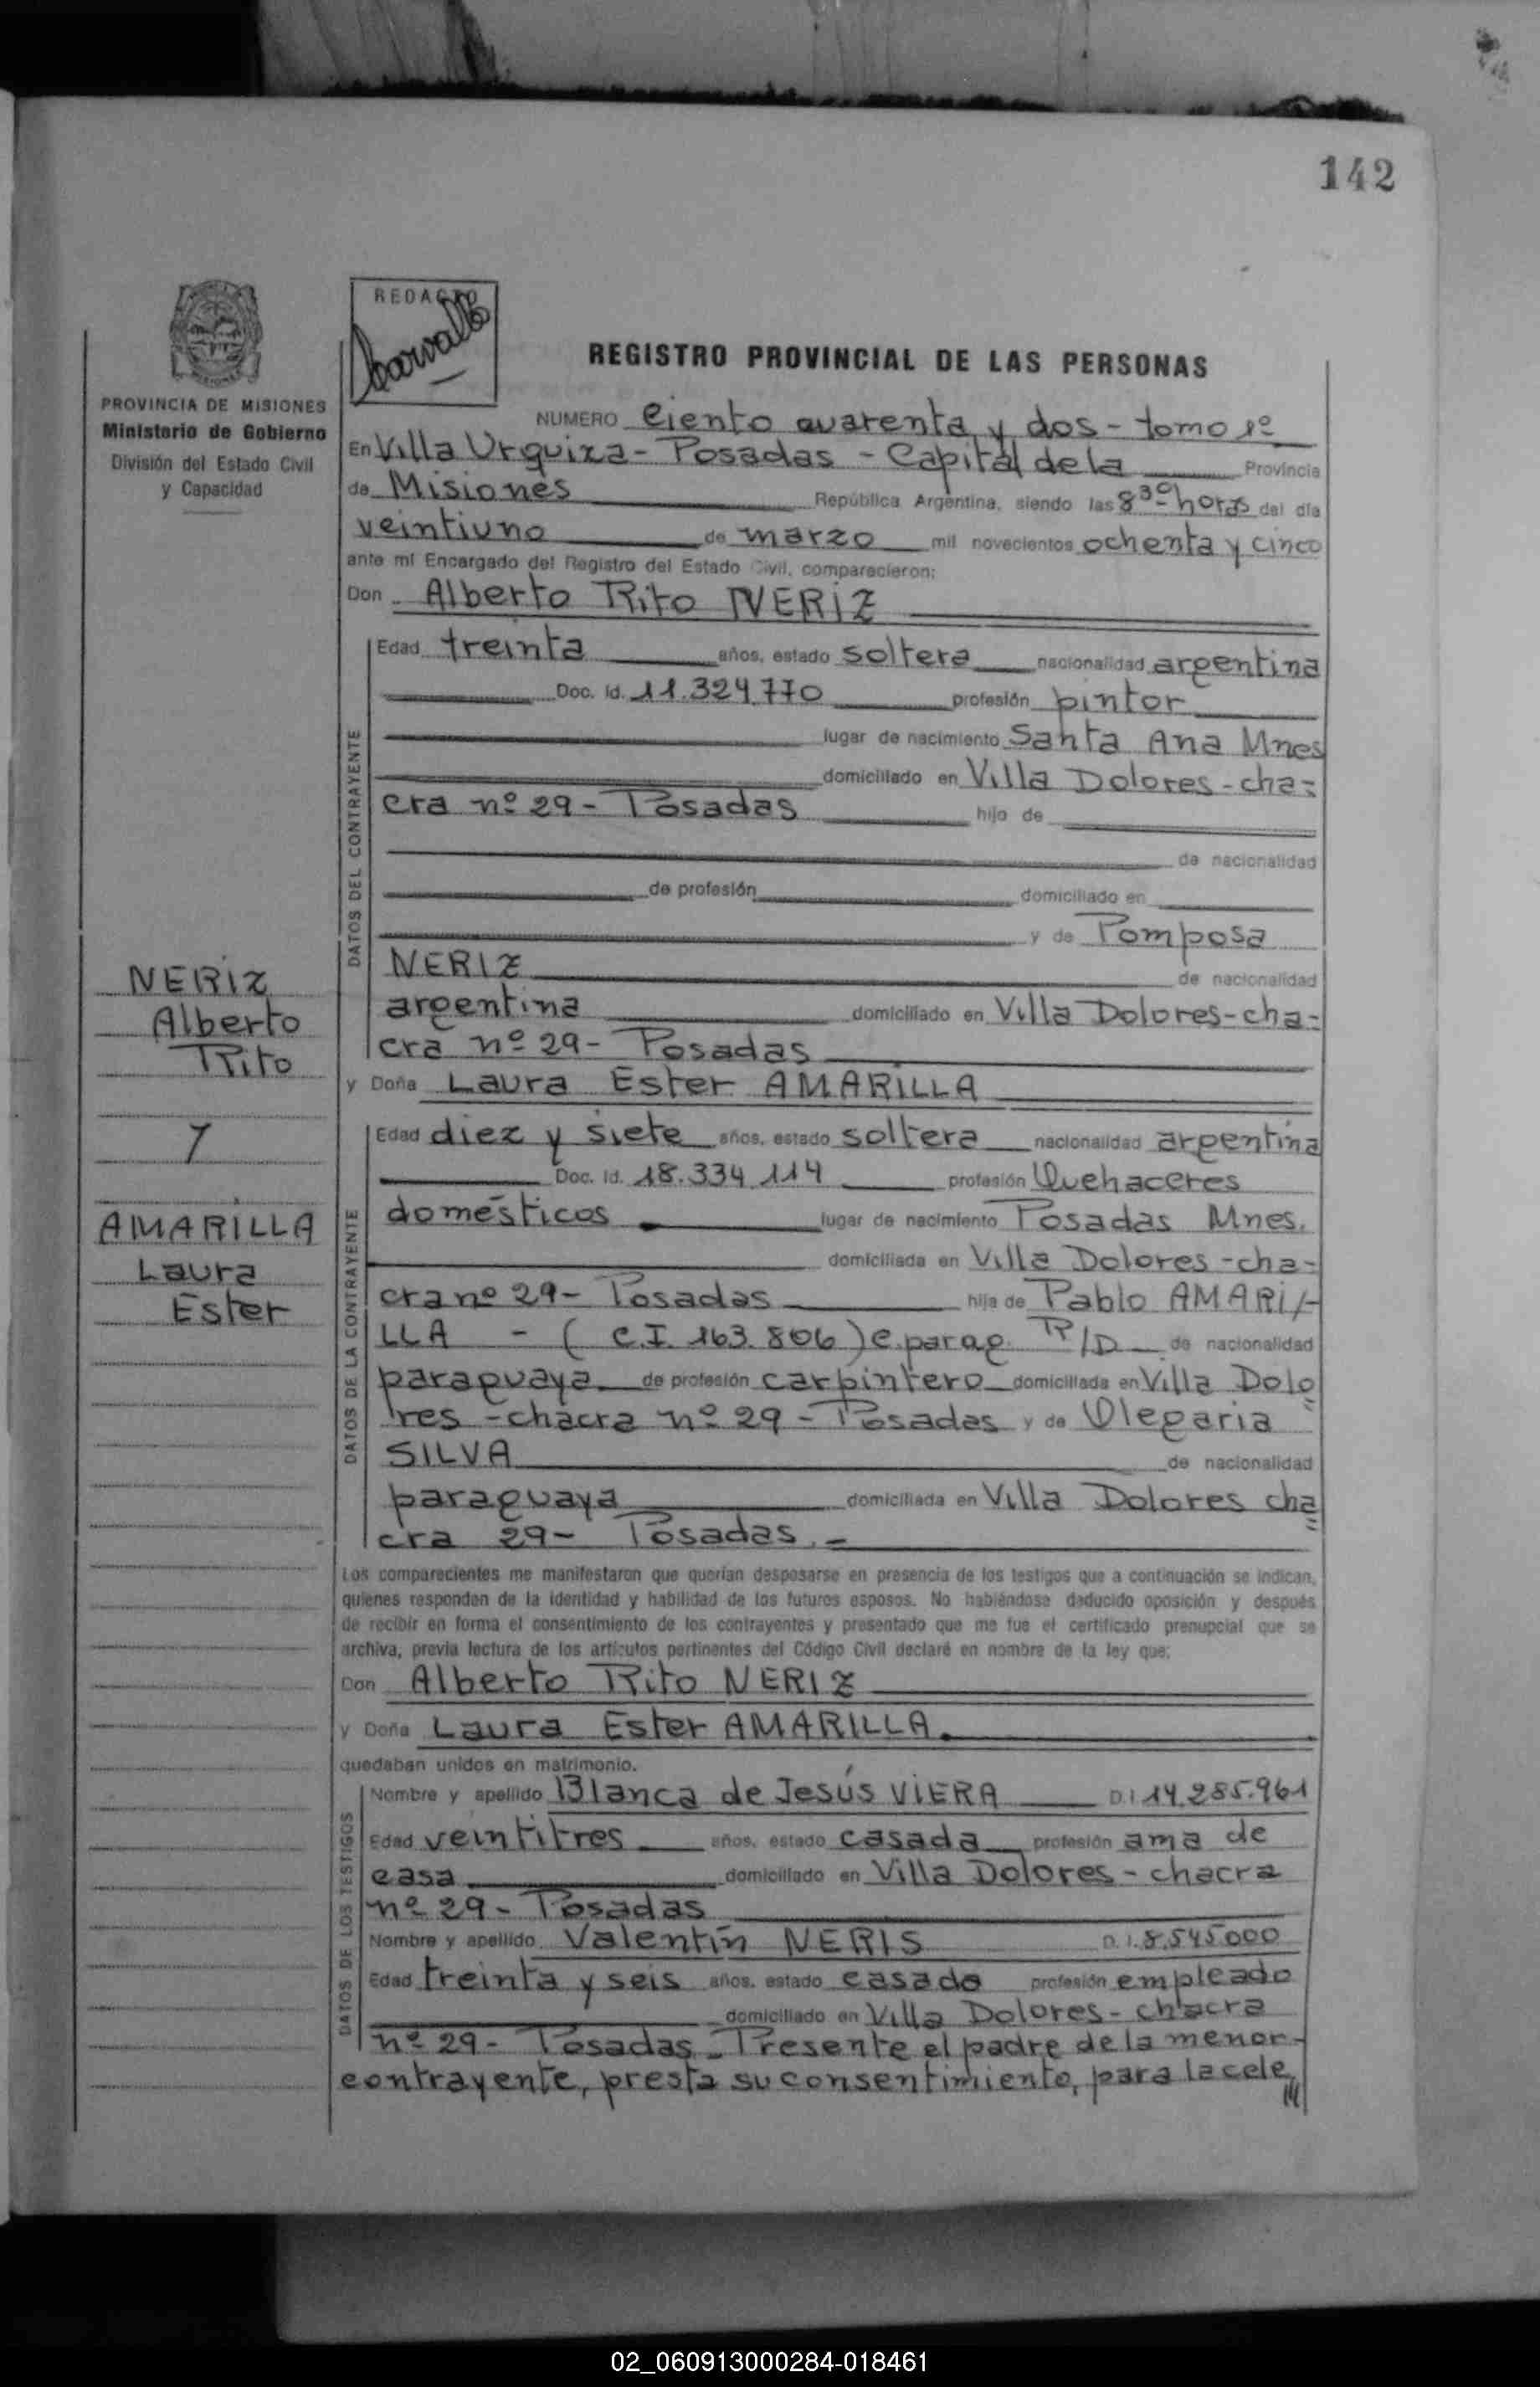 142
REDACTO
REGISTRO PROVINCIAL DE LAS PERSONAS
PROVINCIA DE MISIONES
Ministerio de Gobierno
División del Estado Civil
y Capacidad
NUMERO Ciento cuarenta y dos - tomo 1º
En Villa Urquiza - Posadas - Capital de la Provincia
de Misiones República Argentina, siendo las 8³⁰ horas del día
veintiuno de marzo mil novecientos ochenta y cinco
ante mí Encargado del Registro del Estado Civil, comparecieron:
Don Alberto Rito NERIZ
DATOS DEL CONTRAYENTE
Edad treinta años, estado soltera nacionalidad argentina
Doc. Id. 11.324.770 profesión pintor
lugar de nacimiento Santa Ana Mnes
domiciliado en Villa Dolores - cha=
cra nº 29 - Posadas hijo de
de nacionalidad
de profesión domiciliado en
y de Pomposa
NERIZ de nacionalidad
argentina domiciliado en Villa Dolores - cha=
cra nº 29 - Posadas
NERIZ
Alberto
Rito
/
AMARILLA
Laura
Ester
y Doña Laura Ester AMARILLA
DATOS DE LA CONTRAYENTE
Edad diez y siete años, estado soltera nacionalidad argentina
Doc. Id. 18.334.114 profesión Quehaceres
domésticos lugar de nacimiento Posadas Mnes.
domiciliada en Villa Dolores - cha-
cra nº 29 - Posadas hija de Pablo AMARI/-
LLA - (C.I. 163.806) e.parag. R/D de nacionalidad
paraguaya de profesión carpintero domiciliada en Villa Dolo=
res - chacra nº 29 - Posadas y de Olegaria
SILVA de nacionalidad
paraguaya domiciliada en Villa Dolores cha=
cra 29 - Posadas. -
Los comparecientes me manifestaron que querían desposarse en presencia de los testigos que a continuación se indican,
quienes responden de la identidad y habilidad de los futuros esposos. No habiéndose deducido oposición y después
de recibir en forma el consentimiento de los contrayentes y presentado que me fue el certificado prenupcial que se
archiva, previa lectura de los artículos pertinentes del Código Civil declaré en nombre de la ley que:
Don Alberto Rito NERIZ
y Doña Laura Ester AMARILLA.
quedaban unidos en matrimonio.
DATOS DE LOS TESTIGOS
Nombre y apellido Blanca de Jesús VIERA D.I. 14.285.961
Edad veintitres años, estado casada profesión ama de
casa domiciliado en Villa Dolores - chacra
nº 29 - Posadas
Nombre y apellido Valentín NERIS D.I. 8.545.000
Edad treinta y seis años, estado casado profesión empleado
domiciliado en Villa Dolores - chacra
nº 29 - Posadas - Presente el padre de la menor -
contrayente, presta su consentimiento, para la cele
02_060913000284-018461